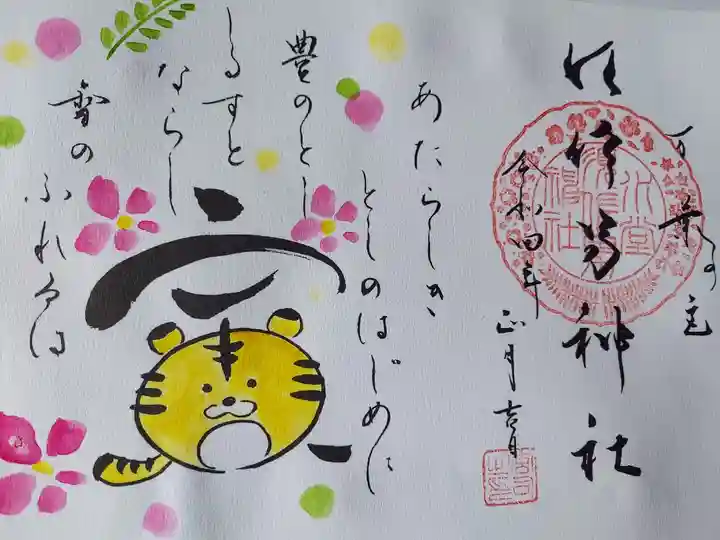 万葉の
神社
令和四年
正月吉日
あたらしき
としのはじめに
豊のとし
しるすと
ならし
雪の
ふれるは